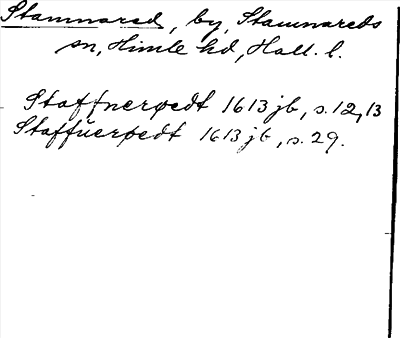 Stamnared, by, Stamnareds
sn, Himle hd, Hall. l.
Staffnerødt 1613 jb, s. 12, 13
Staffuerødt 1613 jb, s. 29.